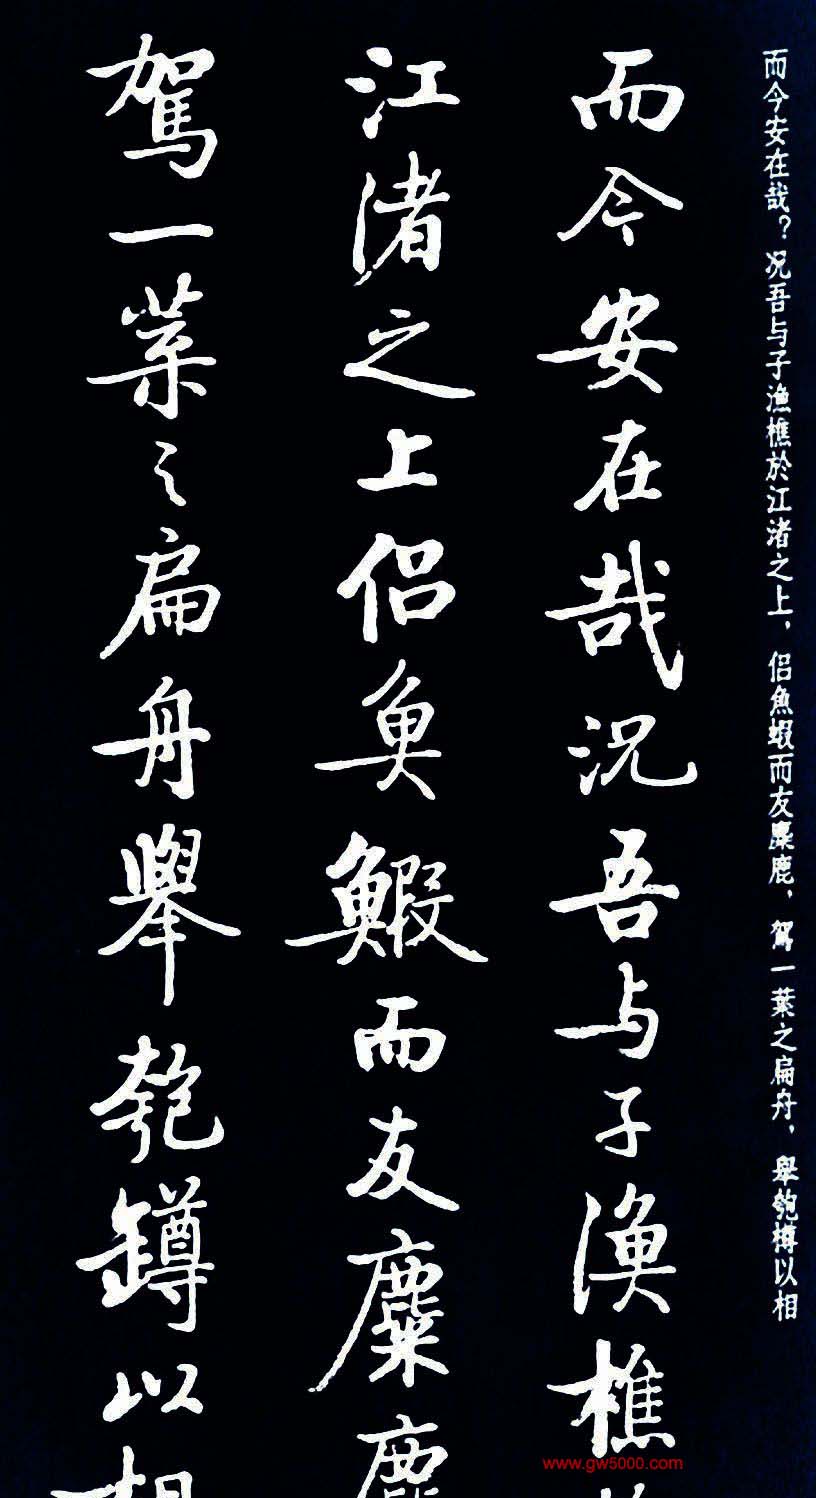 而今安在哉？况吾与子漁樵於江渚之上，侣魚蝦而友麋鹿，駕一葉之扁舟，舉匏樽以相
而今安在哉況吾与子渔樵
江渚之上侣魚鰕而友麋
駕一葉之扁舟舉匏罇以相
www.gw5000.com